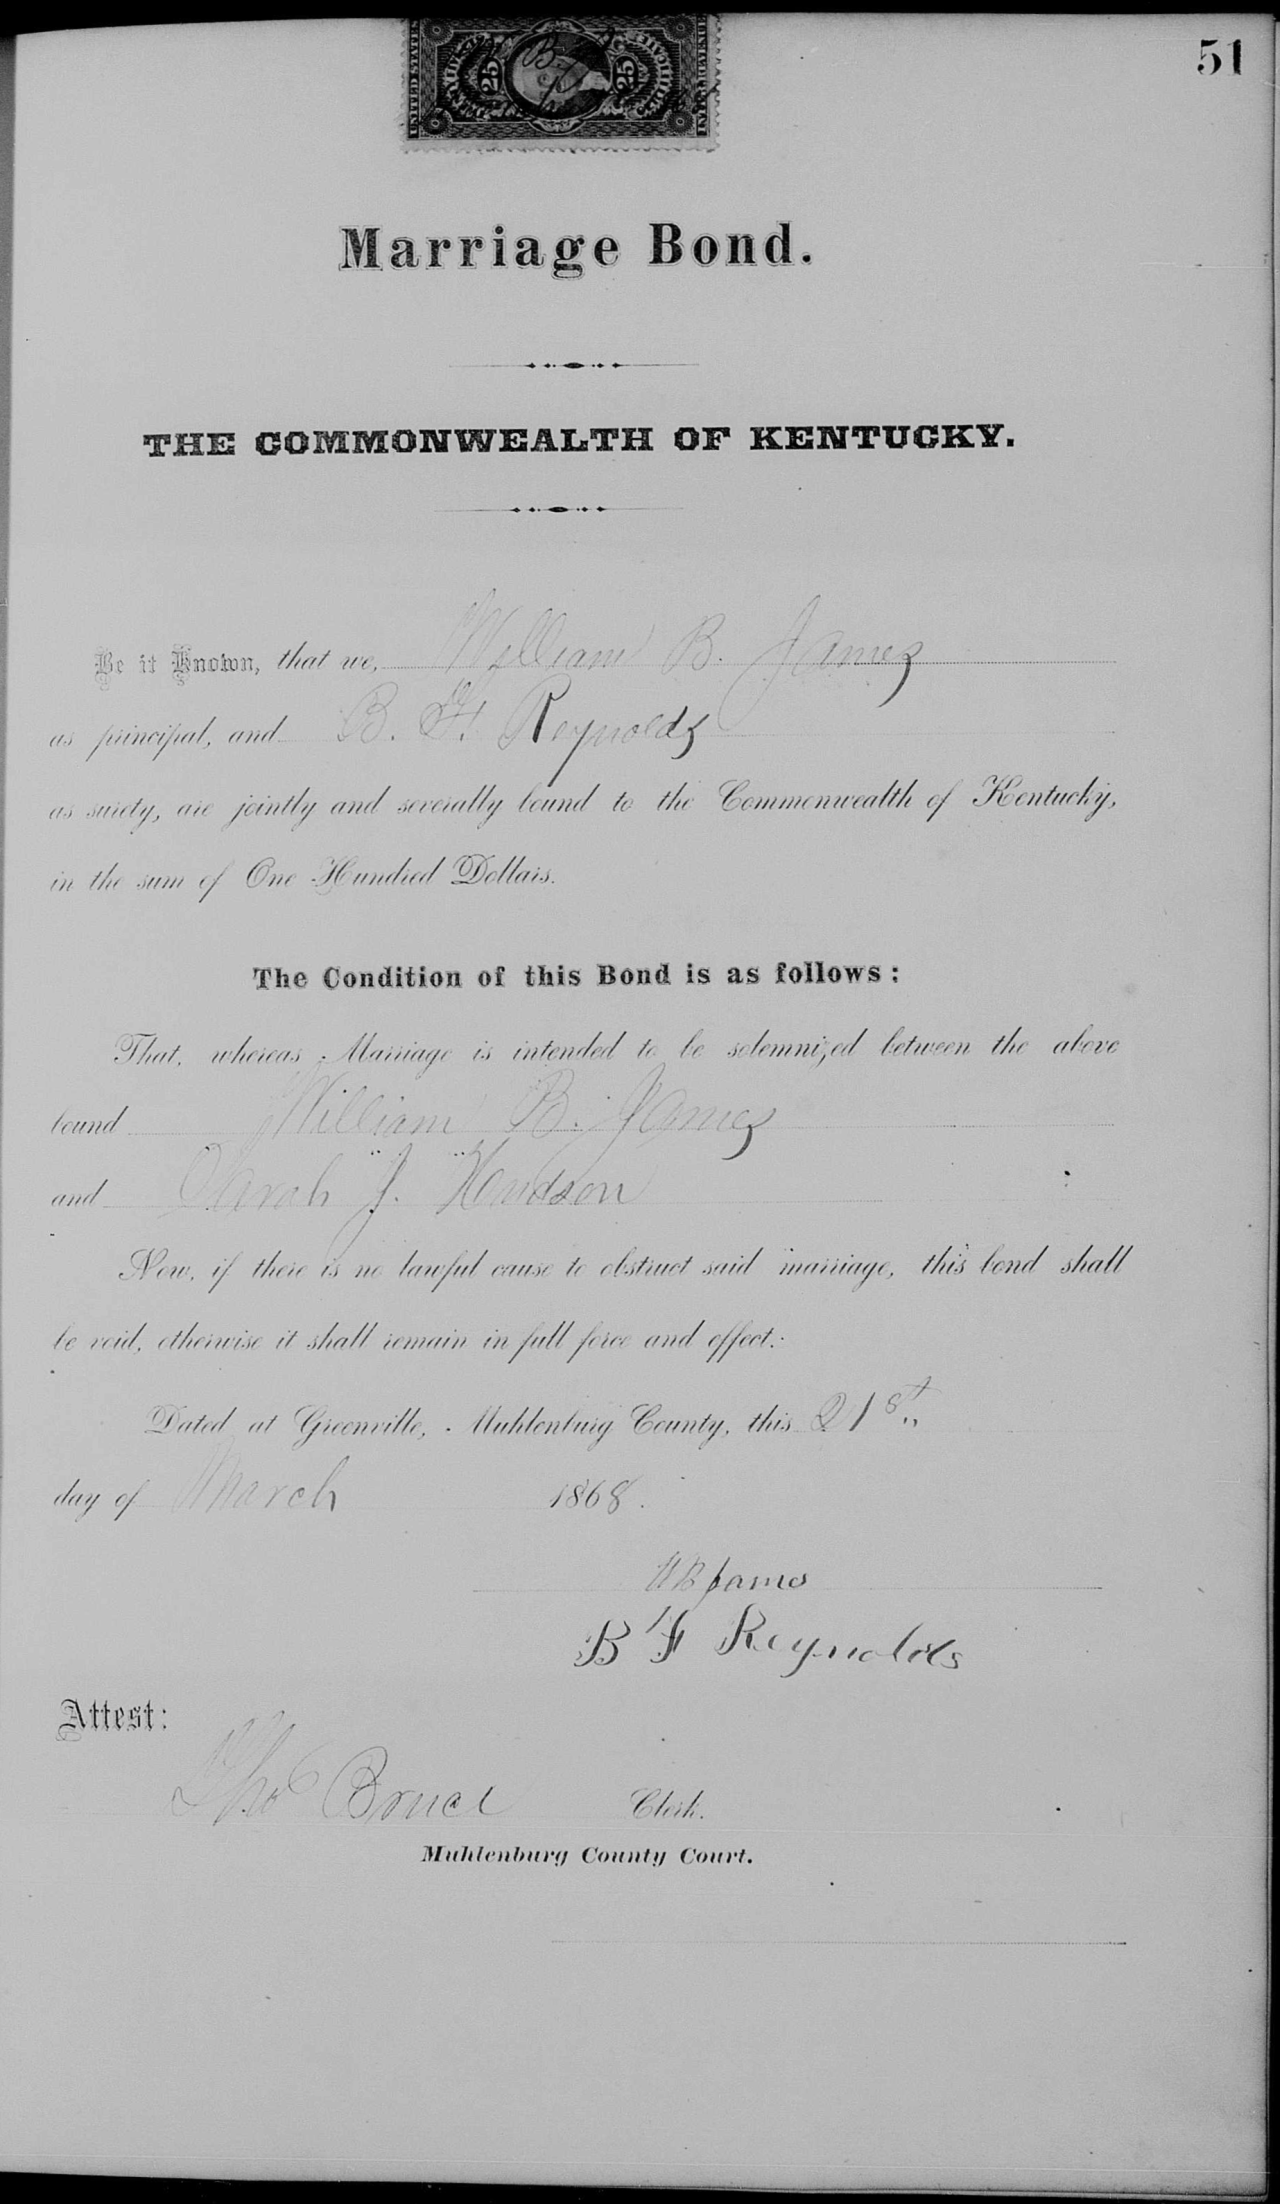 51
UNITED STATES
25 25
CERTIFICATE
INTER. REVENUE
Marriage Bond.
THE COMMONWEALTH OF KENTUCKY.
Be it Known, that we, William B. James
as principal, and B. F. Reynolds
as surety, are jointly and severally bound to the Commonwealth of Kentucky,
in the sum of One Hundred Dollars.
The Condition of this Bond is as follows:
That, whereas Marriage is intended to be solemnized between the above
bound William B. James
and Sarah J. Hewdson
Now, if there is no lawful cause to obstruct said marriage, this bond shall
be void, otherwise it shall remain in full force and effect.
Dated at Greenville, Muhlenburg County, this 21st
day of March 1868.
W B James
B F Reynolds
Attest:
Thos Bruce Clerk.
Muhlenburg County Court.